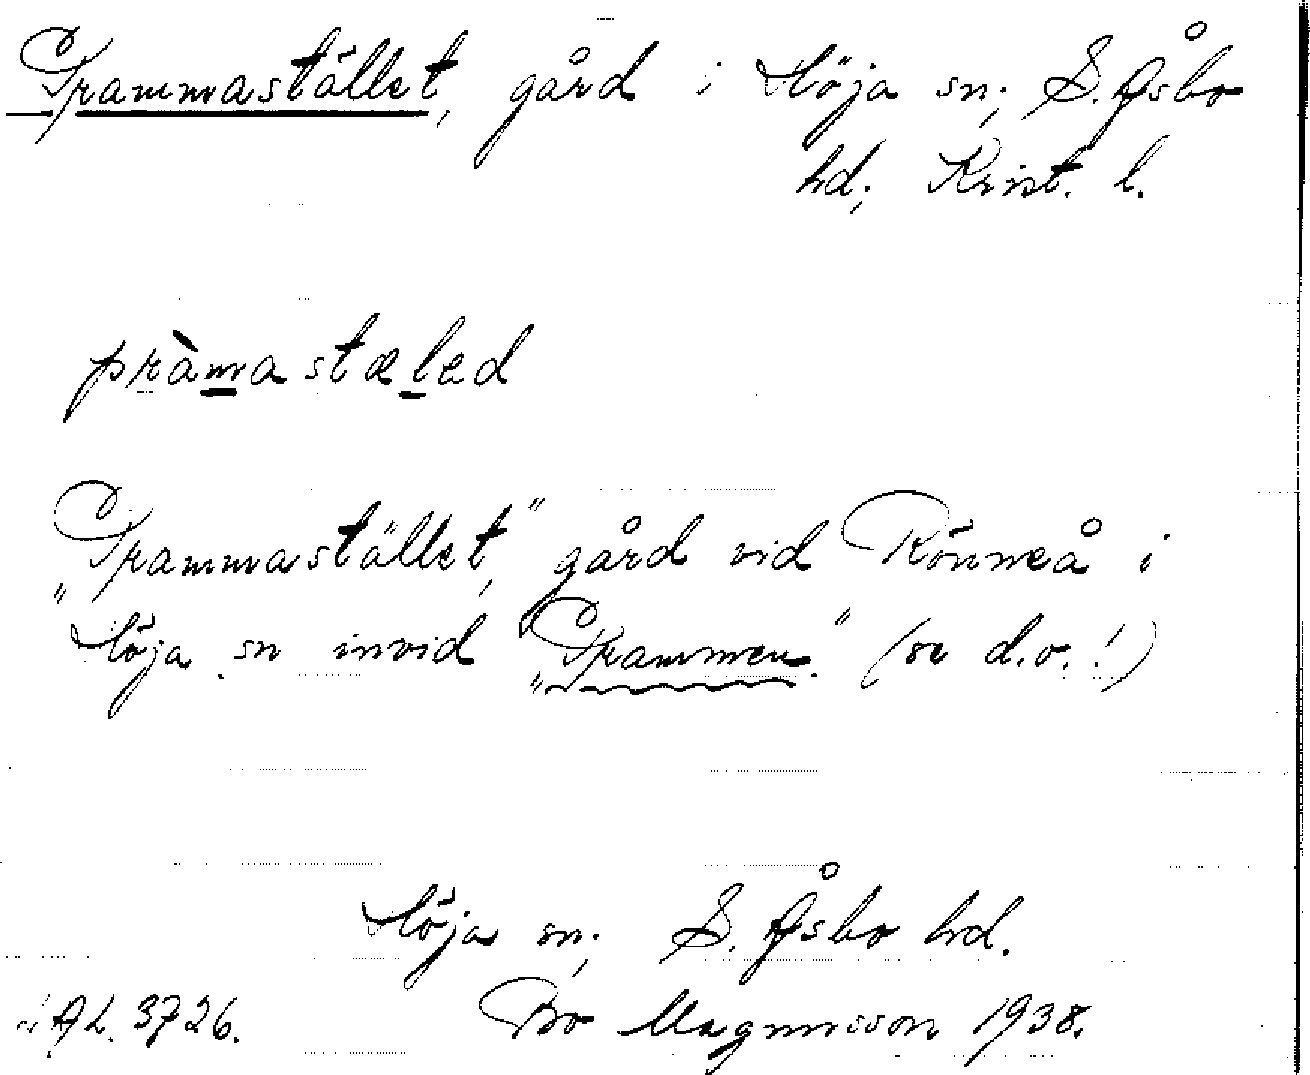 Prammastället, gård i Höja sn; S. Åsbo
hd; Krist. l.
pràmastæled
"Prammastället," gård vid Rönneå i
Höja sn invid "Prammen." (se d.o.!)
Höja sn; S. Åsbo hd.
AL. 3726. Bo Magnusson 1938.